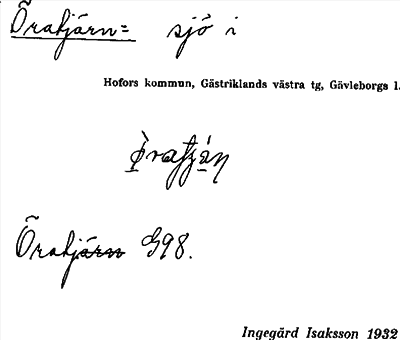 Öratjärn= sjö i
Hofors kommun, Gästriklands västra tg, Gävleborgs l.
Öratjärn G98.
Ingegärd Isaksson 1932